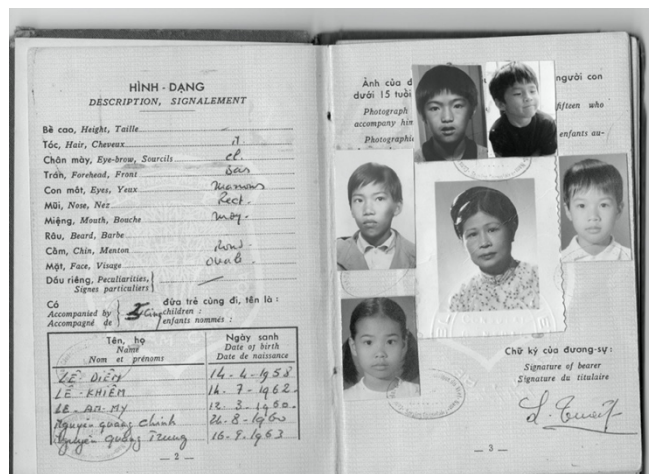 HÌNH - DẠNG
DESCRIPTION, SIGNALEMENT
Bề cao, Height, Taille
Tóc, Hair, Cheveux
Chân mày, Eye-brow, Sourcils ch.
Trán, Forehead, Front bas
Con mắt, Eyes, Yeux marrons
Mũi, Nose, Nez Rect.
Miệng, Mouth, Bouche moy.
Râu, Beard, Barbe
Cằm, Chin, Menton rond
Mặt, Face, Visage ovale
Dấu riêng, Peculiarities,
Signes particuliers
Có đứa trẻ cùng đi, tên là :
Accompanied by children :
Accompagné de enfants nommés :
Tên, họ Ngày sanh
Name Date of birth
Nom et prénoms Date de naissance
LÊ - DIỄM 14-4-1958
LÊ - KHIÊM 14-7-1962
LE - AN-MY 12-3-1960
Nguyễn quang chinh 26-8-1960
Nguyễn quang Trung 16-9-1963
— 2 —
Ảnh của người con
dưới 15 tuổi
Photograph fifteen who
accompany
Photographie enfants au-
Chữ ký của đương-sự :
Signature of bearer
Signature du titulaire
— 3 —